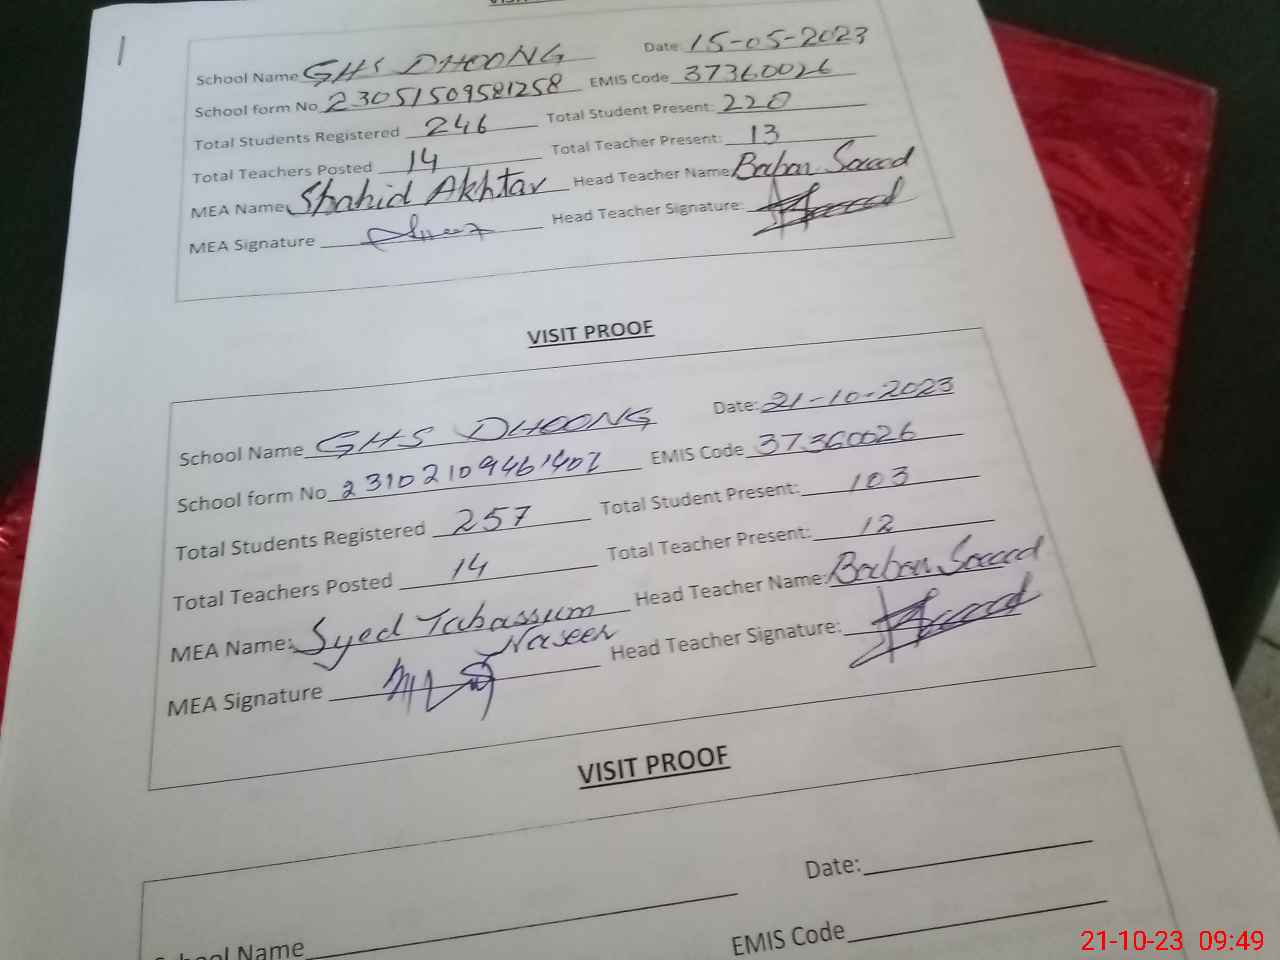 School Name GHS DHOONG Date: 15-05-2023
School form No 23051509581258 EMIS Code 37360026
Total Students Registered 246 Total Student Present: 220
Total Teachers Posted 14 Total Teacher Present: 13
MEA Name: Shahid Akhtar Head Teacher Name: Baban Saeed
MEA Signature Head Teacher Signature:
VISIT PROOF
School Name GHS DHOONG Date: 21-10-2023
School form No 23102109461407 EMIS Code 37360026
Total Students Registered 257 Total Student Present: 103
Total Teachers Posted 14 Total Teacher Present: 12
MEA Name: Syed Tabassum Naseer Head Teacher Name: Baban Saeed
MEA Signature Head Teacher Signature:
VISIT PROOF
Date:
School Name EMIS Code
21-10-23 09:49